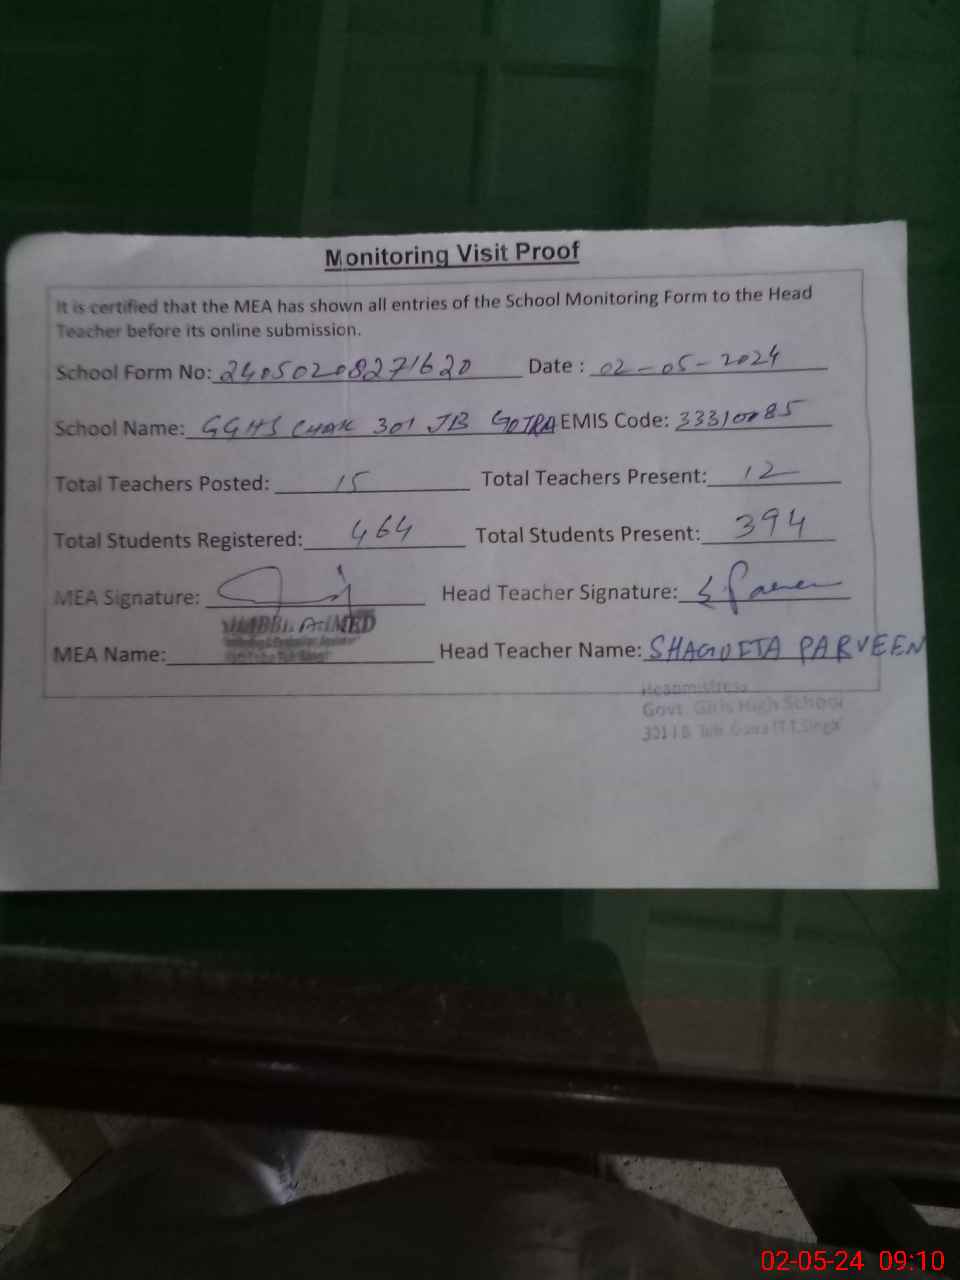 Monitoring Visit Proof
It is certified that the MEA has shown all entries of the School Monitoring Form to the Head
Teacher before its online submission.
School Form No: 24050208271620 Date : 02-05-2024
School Name: GGHS CHAK 301 JB GOJRA EMIS Code: 33310085
Total Teachers Posted: 15 Total Teachers Present: 12
Total Students Registered: 464 Total Students Present: 394
MEA Signature: Head Teacher Signature: S Parveen
AHMED
MEA Name: Head Teacher Name: SHAGUFTA PARVEEN
Headmistress
Govt. Girls High School
301 J.B. T.T.Singh
02-05-24 09:10